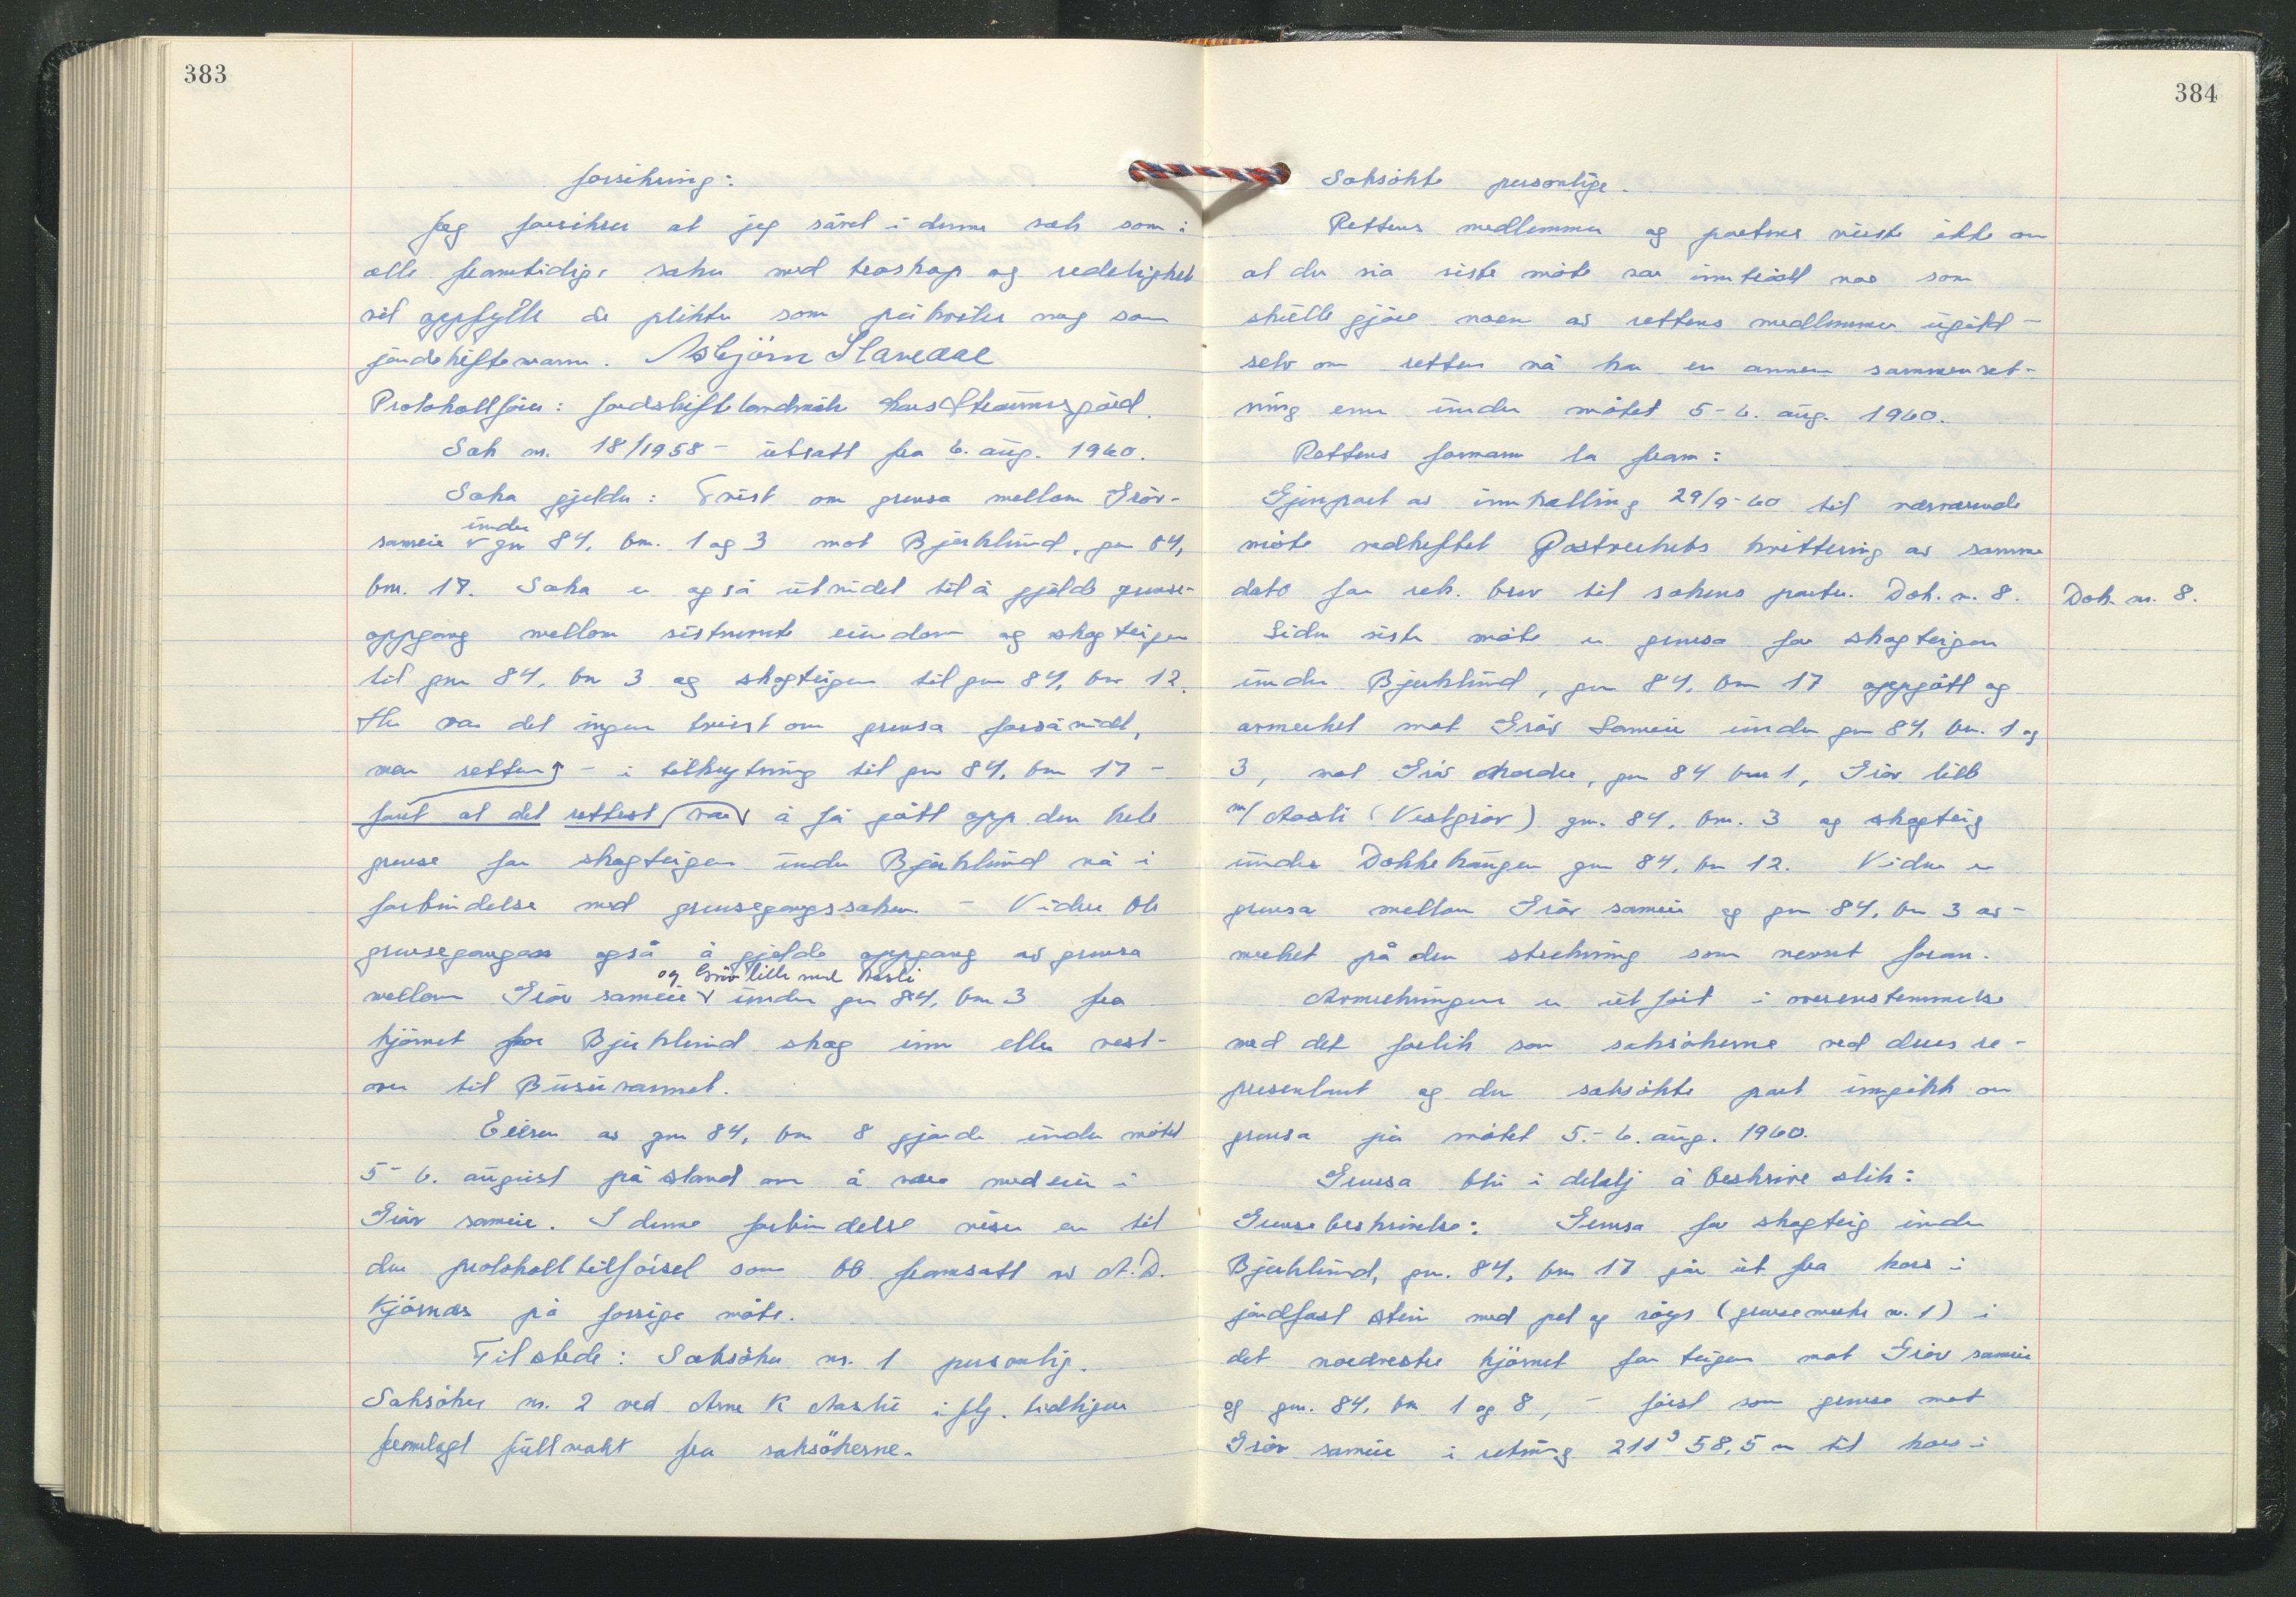 383
forsikring:
Jeg forsikrer at jeg såvel i denne sak som i
alle framtidige saker med troskap og redelighet
vil oppfylle de plikter som påhviler meg som
jordskiftemann. Asbjörn Slaredal
Protokollförer: Jordskiftelandmåler
Sak nr. 18/1958 - utsatt fra 6. aug. 1960.
Saka gjelder: Tvist om grensa mellom Gröv-
sameie under gnr 84, bnr. 1 og 3 mot Bjerklund, gnr 84,
bnr. 17. Saka er også utvidet til å gjelde grense-
oppgang mellom sistnevnte eiendom og skogteigen
til gnr 84, bnr 3 og skogteigen til gnr 84, bnr 12.
Her var det ingen tvist om grensa forsåvidt,
men retten - i tilknytning til gnr 84, bnr 17 -
fant at det rettest var å få gått opp den hele
grense for skogteigen under Bjerklund nå i
forbindelse med grensegangssaken - Videre ble
grensegangen også å gjelde oppgang av grensa
mellom Gröv sameie og Gröv lille med Aasli under gnr 84, bnr 3 fra
hjörnet for Bjerklund skog inn eller vest-
over til Busuvannet.
Eieren av gnr 84, bnr 8 gjorde under mötet
5-6. august påstand om å være medeier i
Gröv sameie. I denne forbindelse viser en til
den protokolltilförsel som ble framsatt av A.D.
Kjörnæs på forrige möte.
Tilstede: Saksöker nr. 1 personlig.
Saksöker nr. 2 ved Arne K Aasli iflg. tidligere
fremlagt fullmakt fra saksökerne.
384
Saksökte personlige.
Rettens medlemmer og partene visste ikke om
at der sia siste möte var inntrådt noe som
skulle gjöre noen av rettens medlemmer ugild -
selv om retten nå har en annen sammenset-
ning enn under mötet 5-6. aug. 1960.
Rettens formann la fram:
Gjenpart av innkalling 29/9-60 til nærværende
möte vedheftet Postverkets kvittering av samme
dato for rek. brev til sakens parter. Dok. nr. 8.
Dok. nr. 8.
Siden siste möte er grensa for skogteigen
under Bjerklund, gnr 84, bnr 17 oppgått og
avmerket mot Gröv Sameie under gnr 84, bnr. 1 og
3, mot Gröv Nordre, gnr 84 bnr 1, Gröv lille
m/ Aasli (Vestgröv) gnr. 84, bnr. 3 og skogteig
under Dokkehaugen gnr 84, bnr 12. Videre er
grensa mellom Gröv sameie og gnr 84, bnr 3 av-
merket på den strekning som nevnt foran.
Avmerkingen er utfört i overenstemmelse
med det forlik som saksökerne ved deres re-
presentant og den saksökte part inngikk om
grensa på mötet 5.-6. aug. 1960.
Grensa blir i detalj å beskrive slik:
Grensebeskrivelse: Grensa for skogteig under
Bjerklund, gnr. 84, bnr 17 går ut fra kors i
jordfast stein med pel og röys (grensemerke nr. 1) i
det nordvestre hjörnet for teigen mot Gröv sameie
og gnr. 84, bnr 1 og 8, - först som grense mot
Gröv sameie i retning 211g 58,5 m til kors i